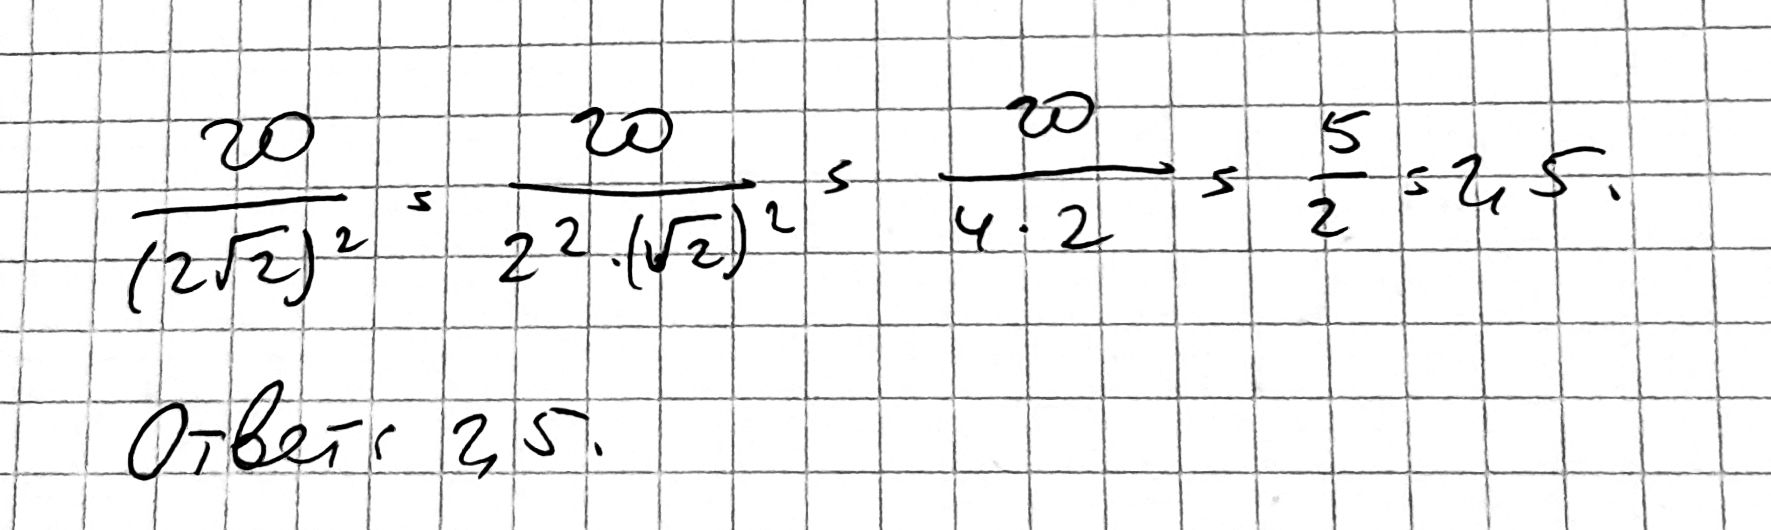 20/(2√2)² = 20/(2² · (√2)²) = 20/(4 · 2) = 5/2 = 2,5.
Ответ: 2,5.